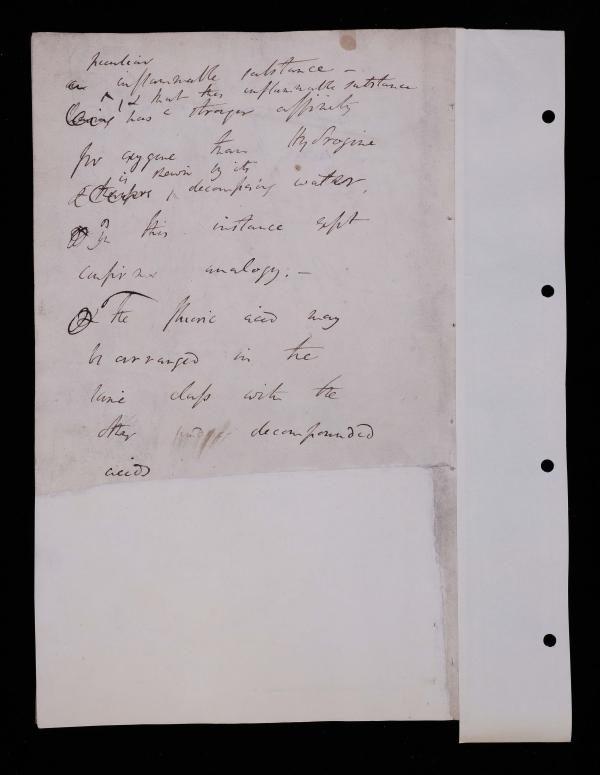 peculiar
inflammable substance –
& that this inflammable substance
has a stronger affinity
for oxygene than Hydrogine
is shewn by its
decomposing water,
In this instance
analogy. –
The fluoric acid may
be arranged in the
same class with the
other decompounded
acids